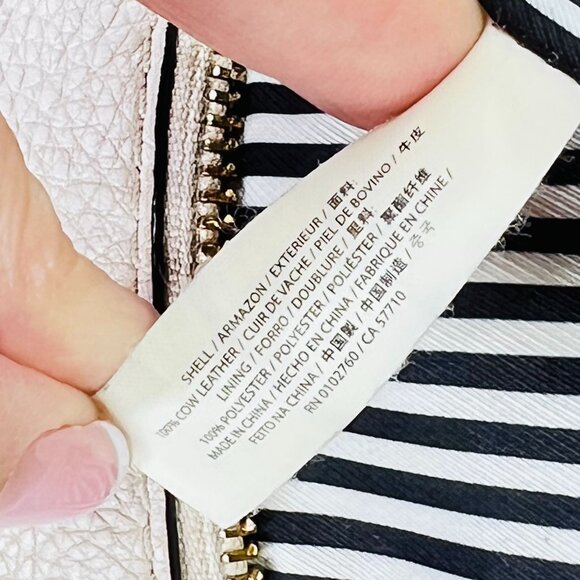 SHELL / ARMAZON / EXTERIEUR / 面料:
100% COW LEATHER / CUIR DE VACHE / PIEL DE BOVINO / 牛皮
LINING / FORRO / DOUBLURE / 里料:
100% POLYESTER / POLYESTER / POLIÉSTER / 聚酯纤维
MADE IN CHINA / HECHO EN CHINA / FABRIQUE EN CHINE /
FEITO NA CHINA / 中國製 / 中国制造 / 중국
RN 0102760 / CA 57710